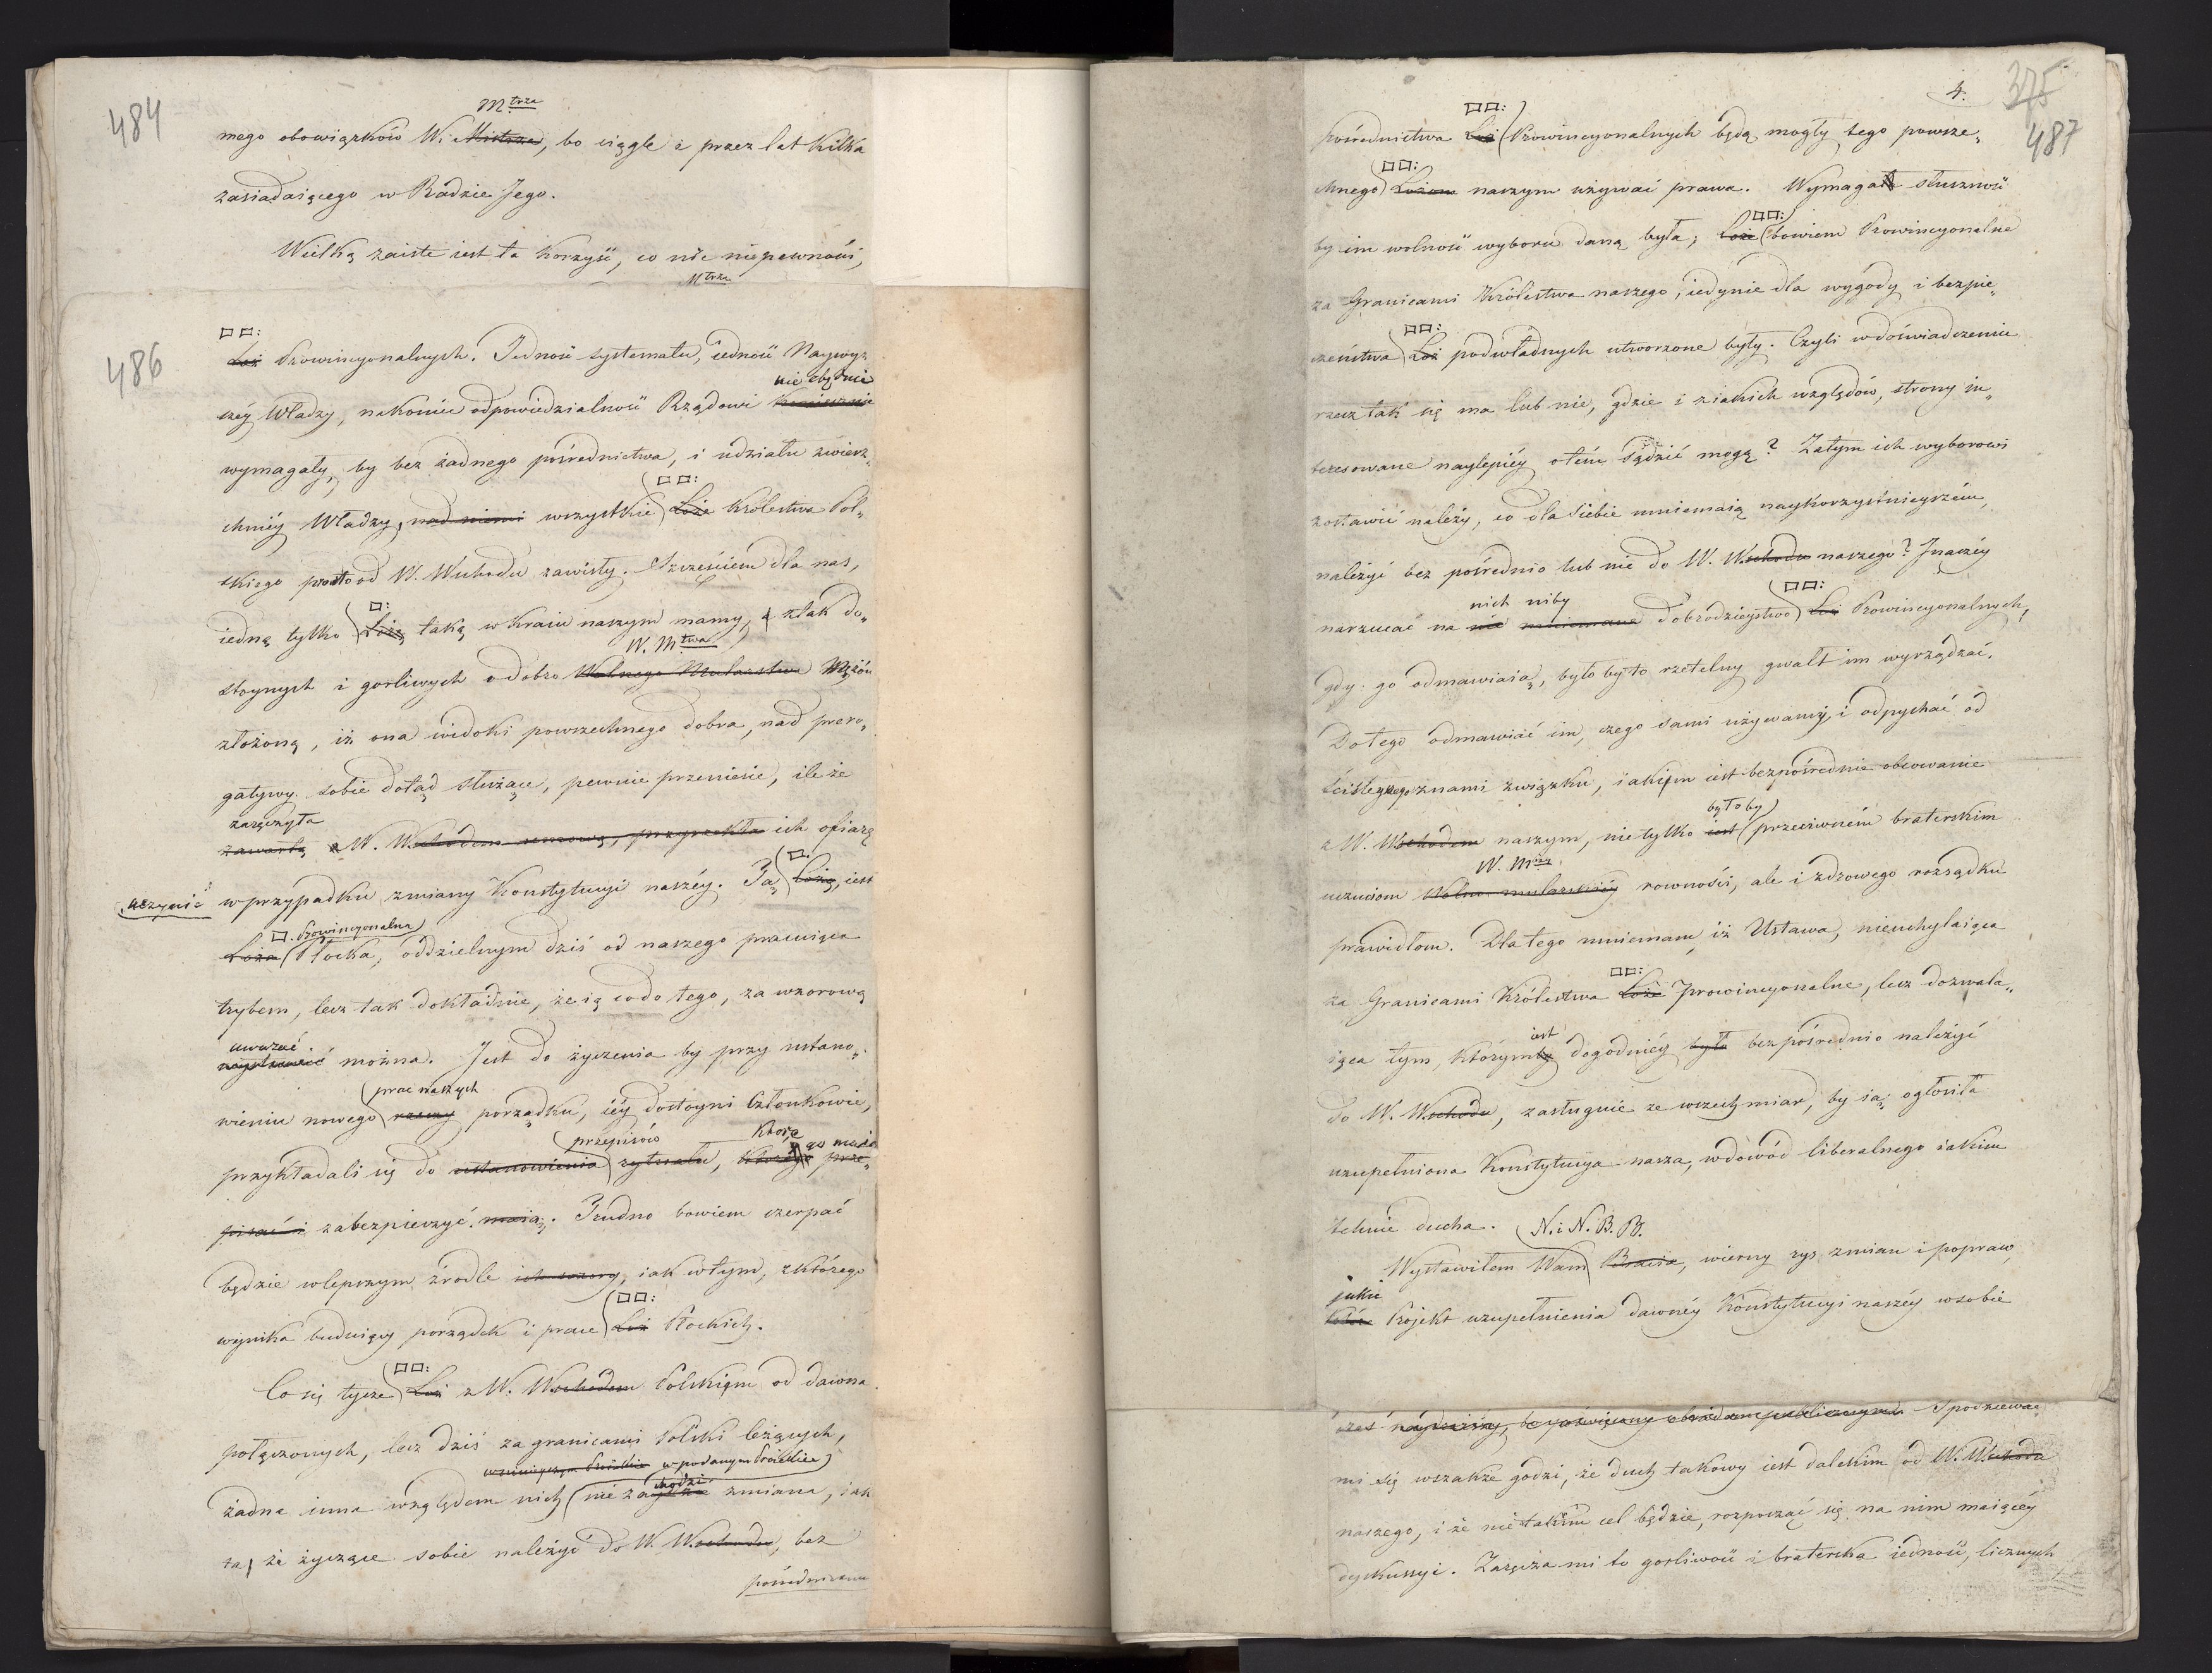 484
Mtrza
mego obowiązków W. Mistrza, bo ciągle i przez lat kilka
zasiadaiącego w Radzie Jego.
Wielką zaiste iest ta korzyść, co nic niepewności,
Mtrza
486
□□:
Loż Prowincyonalnych. Jedność systematu, iedność Naywyż„
niezbędnie
széy Władzy, nakoniec odpowiedzialność Rządowi koniecznie
wymagały, by bez żadnego pośrednictwa, i udziału zwierz„
□□:
chniéy Władzy, nad niemi wszystkie Loże Królestwa Pol„
skiego prosto od W. Wschodu zawisły. Szczęściem dla nas,
□:
iedną tylko Lożę taką w kraiu naszym mamy, a z tak do„
W. Mtwa
stoynych i gorliwych o dobro Wolnego Mularstwa Mężów
złożoną, iż ona widoki powszechnego dobra, nad prero„
gatywy sobie dotąd służące, pewnie przeniesie, ile że
zaręczyła
zawartą z W. Wschodem umową, przyrzekła ich ofiarę
□.
uczynić w przypadku zmiany Konstytucyi naszéy. Tą Lożą, iest
□. Prowincyonalna
Loża Płocka, oddzielnym dziś od naszego pracuiąca
trybem, lecz tak dokładnie, że ią co do tego, za wzorową
uważać
można. Jest do życzenia by przy ustano„
prac naszych
wieniu nowego rzeczy porządku, iéy dostoyni Członkowie,
przepisów które go maią
przykładali się do ustanowienia rytuału, prze„
pisać i zabezpieczyć maią. Trudno bowiem czerpać
będzie w lepszym źrodle ich wzory, iak w tym, z którego
□□:
wynika buduiący porządek i prace Loż Płockich.
□□:
Co się tycze Loż z W. Wschodem Polskiem od dawna
połączonych, lecz dziś za granicami Polski leżących,
w podanym Proiekcie
chodzi
żadna inna względem nich nie za zmiana, iak
ta, że życzące sobie należyć do W. Wschodu, bez
pośrednictwa
4.
375
487
□□:
pośrednictwa Loż Prowincyonalnych będą mogły tego powsze„
□□:
chnego Lożom naszym używać prawa. Wymaga słuszność
□□:
by im wolność wyboru daną była; Loże bowiem Prowincyonalne
za Granicami Królestwa naszego, iedynie dla wygody i bezpie„
□□:
czeństwa Loż podwładnych utworzone były. Czyli w doświadczeniu
rzecz tak się ma lub nie, gdzie i z iakich względów, strony in„
teresowane naylepiéy o tém sądzić mogą? Zatym ich wyborowi
zostawić należy, co dla siebie mniemaią naykorzystnieyszém,
należyć bez pośrednio lub nie do W. Wschodu naszego? Inaczéy
nich niby □□:
narzucać na nie mniemane dobrodzieystwo Loż Prowincyonalnych,
gdy go odmawiaią, było by to rzetelny gwałt im wyrządzać.
Do tego odmawiać im, czego sami używamy, i odpychać od
ściśleyszego z nami związku, iakim iest bezpośrednie obcowanie
było by
z W. Wschodem naszym, nie tylko iest przeciwném braterskim
W. Miéy
uczuciom Wolno-mularskiéy rowności, ale i zdrowego rozsądku
prawidłom. Dla tego mniemam, iż Ustawa, nieuchylaiąca
□□:
za Granicami Królestwa Loże Prowincyonalne, lecz dozwala„
iest
iąca tym, którym by dogodniéy było bezpośrednio należyć
do W. Wschodu, zasługuie ze wszech miar, by ią ogłosiła
uzupełniona Konstytucya nasza, w dowód liberalnego iakim
tchnie ducha. N. i N. B. B.
Wystawiłem Wam Bracia, wierny rys zmian i popraw,
jakie
które Projekt uzupełnienia dawnéy Konstytucyi naszéy w sobie
czas Spodziewać
mi się wszakże godzi, że duch takowy iest dalekim od W. Wschodu
naszego, i że nie takim cel będzie, rozpocząć się na nim maiącéy
dyskussyi. Zaręcza mi to gorliwość i braterska iedność, licznych